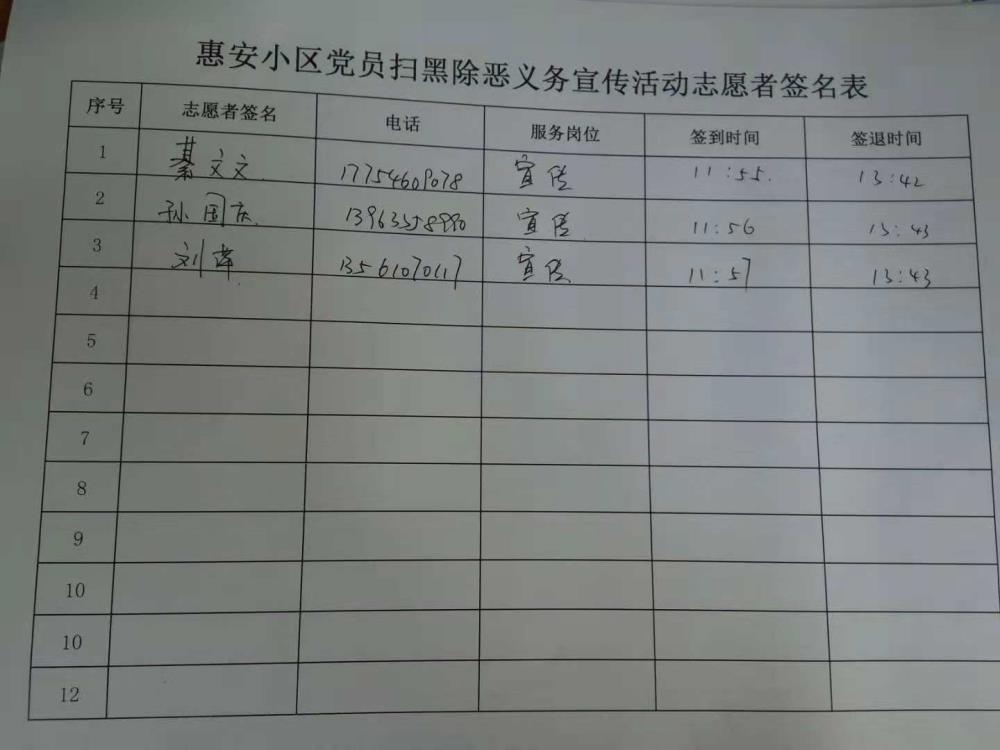 惠安小区党员扫黑除恶义务宣传活动志愿者签名表
序号 志愿者签名 电话 服务岗位 签到时间 签退时间
1 綦文文 17754609078 宣传 11:55. 13:42
2 孙国庆 宣传 11:56 13:43
3 刘 13561070117 宣传 11:57 13:43
4
5
6
7
8
9
10
10
12